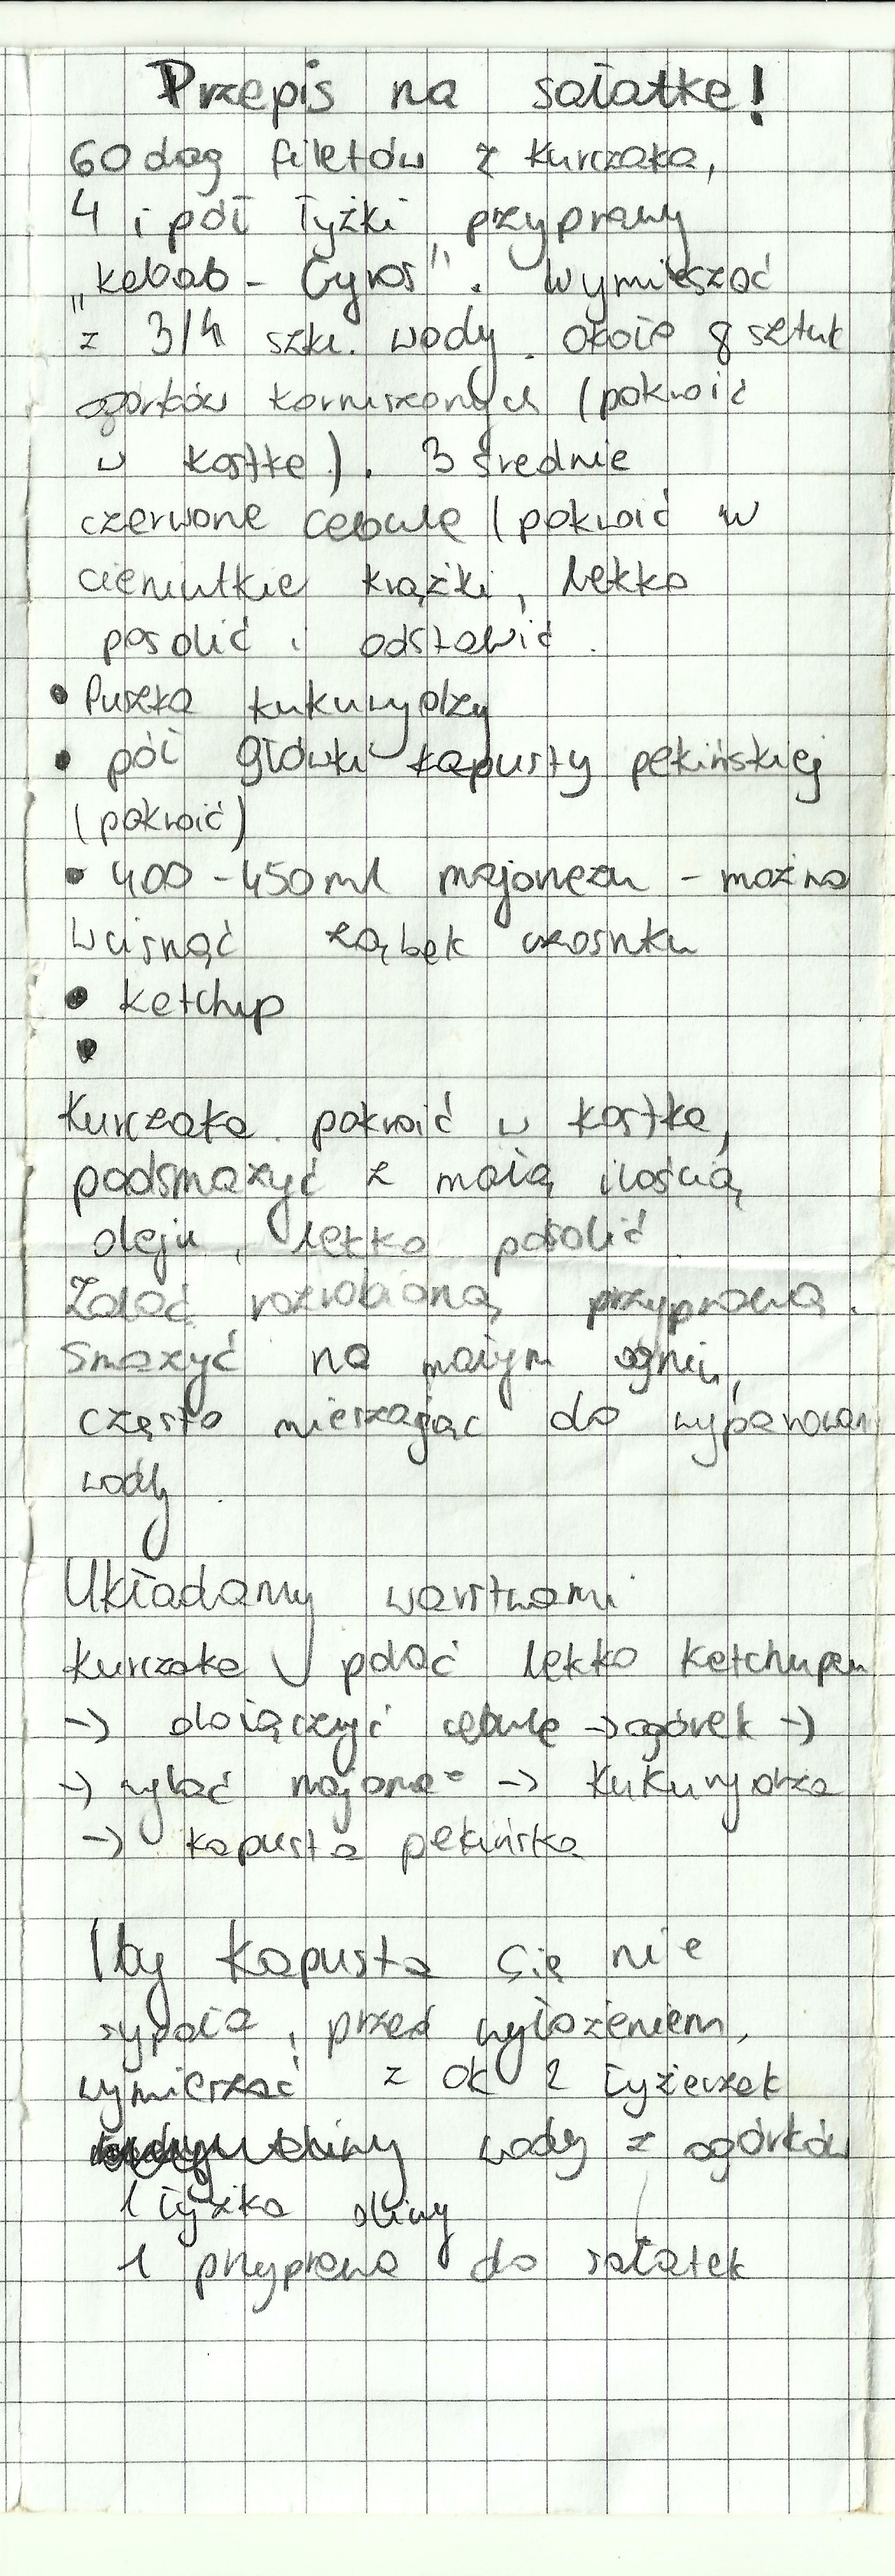 Przepis na sałatkę!
60 dag filetów z kurczaka,
4 i pół łyżki przyprawy
„kebab - Gyros". Wymieszać
z 3/4 szkl. wody. Około 8 sztuk
ogórków korniszonych (pokroić
w kostkę). 3 średnie
czerwone cebule (pokroić w
cieniutkie krążki, lekko
posolić i odstawić.
• Puszka kukurydzy
• pół główki kapusty pekińskiej
(pokroić)
• 400 - 450 ml majonezu - można
wcisnąć ząbek czosnku
• ketchup
•
Kurczaka pokroić w kostkę,
podsmażyć z małą ilością
oleju, lekko posolić
Zalać rozrobioną przyprawą.
Smażyć na małym ogniu,
często mieszając do wyparowan
wody
Układamy warstwami
kurczaka polać lekko ketchupem
-> dołączyć cebulę -> ogórek ->
-> wylać majonez -> kukurydza
-> kapusta pekińska
Aby kapusta się nie
sypała, przed wyłożeniem,
wymieszać z ok 2 łyżeczek
wody z ogórków
1 łyżka oliwy
1 przyprawa do sałatek